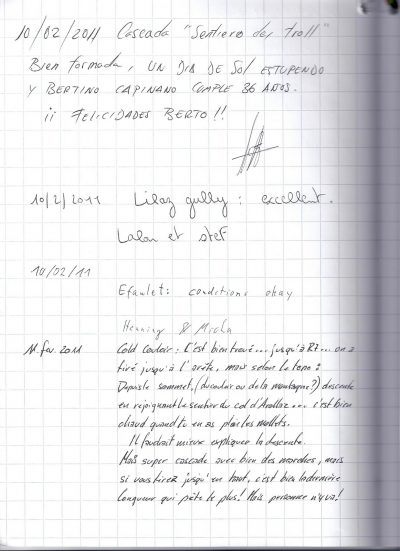 10/02/2011 Cascada "Sentiero dei troll"
Bien formada, UN DIA DE SOL ESTUPENDO
Y BERTINO CAPINANO CUMPLE 86 AÑOS.
¡¡ FELICIDADES BERTO !!
10/2/2011 Lilaz gully : excellent.
Lalou et stef
10/02/11
Efaulet: conditions okay
Henning & Micla
11. fev. 2011 Cold Couloir : C'est bien tracé... jusqu'à R7... on a
tiré jusqu'à l'arête, mais selon le topo :
Depuis le sommet, (du couloir ou de la montagne?) descendre
en rejoignant le sentier du col d'Arolla... c'est bien
chaud quand tu en as plein les mollets.
Il faudrait mieux expliquer la descente.
Mais super cascade avec bien des marches, mais
si vous tirez jusqu'en haut, c'est bien la dernière
longueur qui pète le plus! Mais personne n'y va!